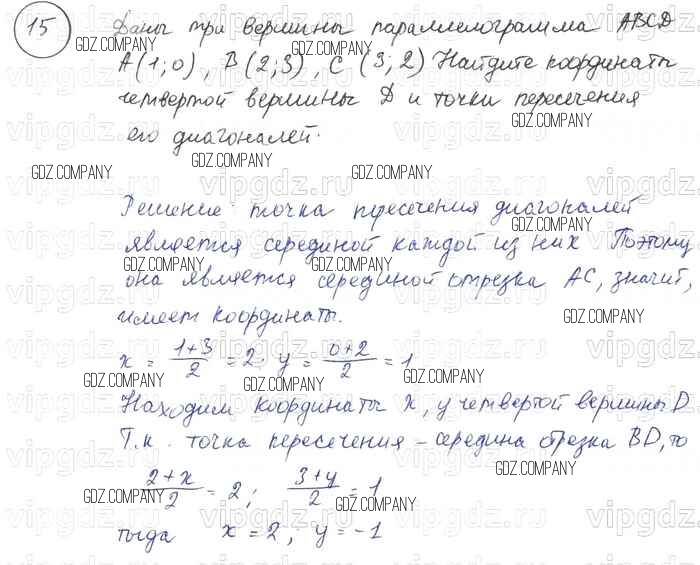 15 Даны три вершины параллелограмма ABCD
A(1;0), B(2;3), C(3;2) Найдите координаты
четвертой вершины D и точки пересечения
его диагоналей.
Решение: точка пересечения диагоналей
является серединой каждой из них Поэтому
она является серединой отрезка AC, значит,
имеет координаты.
x = \frac{1+3}{2} = 2; y = \frac{0+2}{2} = 1
Находим координаты x, y четвертой вершины D.
Т.к. точка пересечения – середина отрезка BD, то
\frac{2+x}{2} = 2; \frac{3+y}{2} = 1
тогда x = 2; y = -1
GDZ.COMPANY
vipgdz.ru